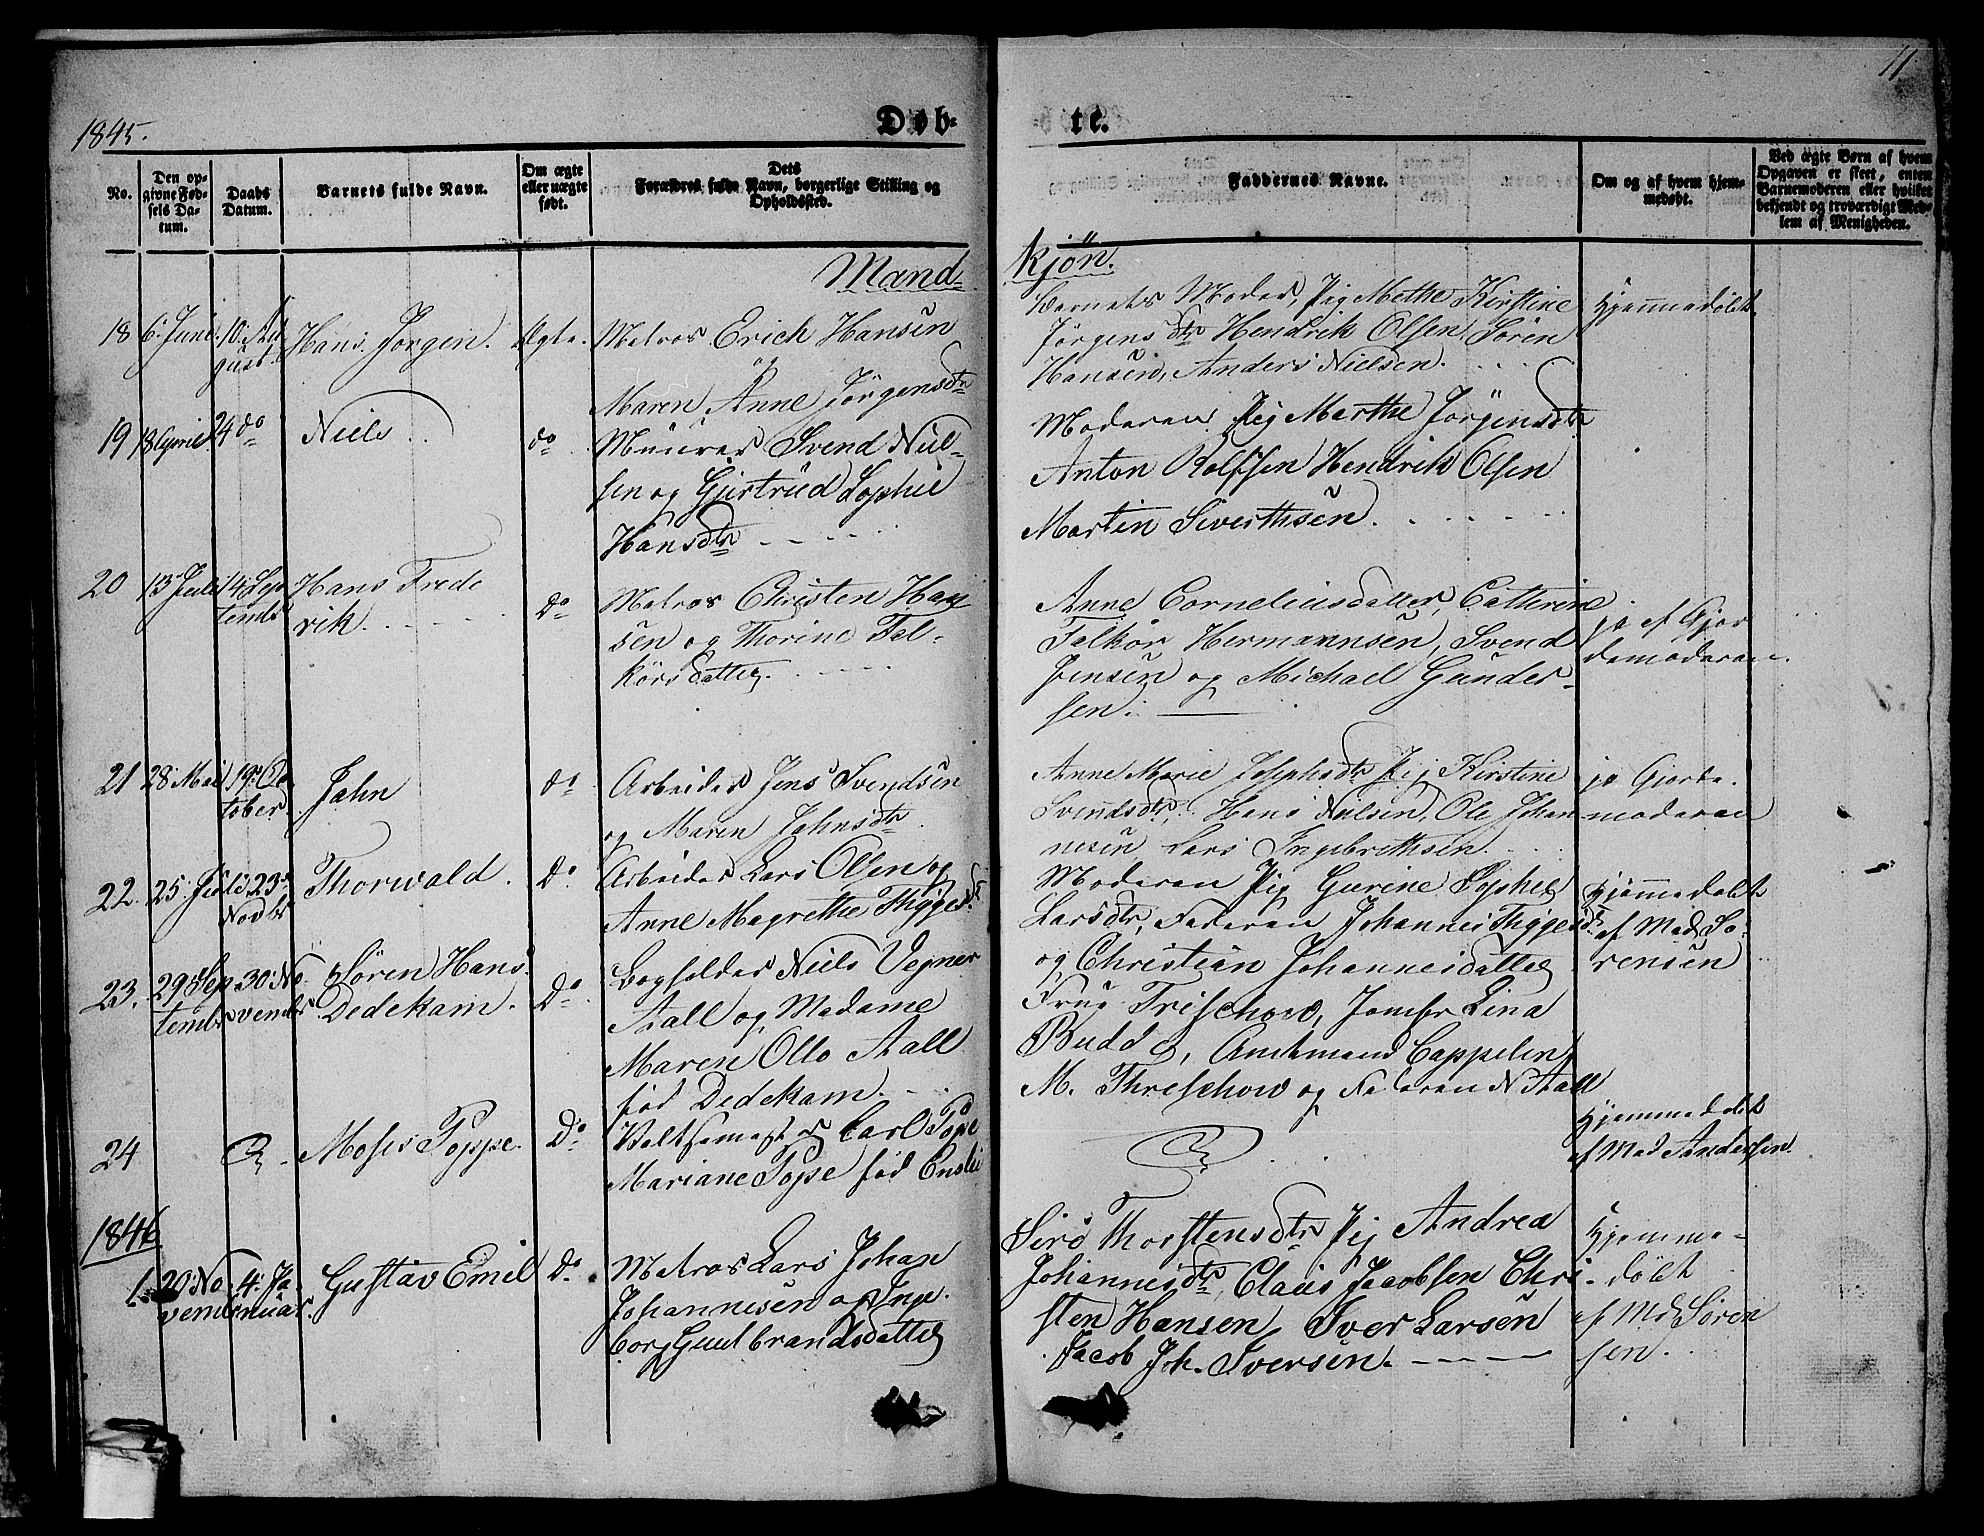 1845.
Døb-
te.
11
No.
Den op-
givne Fød-
sels Da-
tum.
Daabs
Datum.
Barnets fulde Navn.
Om ægte
eller uægte
født.
Dets
Forældres fulde Navn, borgerlige Stilling og
Opholdssted.
Faddernes Navne.
Om og af hvem hjem-
medøbt.
Ved ægte Børn af hvem
Opgaven er skeet, enten
Barnemoderen eller hvilket
bekjendt og troværdigt Med-
lem af Menigheden.
Mand-
kjøn.
18 6: Juni. 10: Au
gust. Hans Jørgen. Ægte. Matros Erich Hansen
Maren Anne Jørgensdtr
Barnets Moder, Pig Methe Kirstine
Jørgensdtr Hendrik Olsen, Søren
Hansen, Anders Nielsen.
Hjemmedøbt
19 18 April. 24 do Niels do Muurer Svend Niel-
sen og Gjertrud Sophie
Hansdtr
Moderen Pig Marthe Jørgensdtr
Anton Rolfsen Hendrik Olsen
Martin Siverthsen.
20 13 Juli 14: Sep
tembr Hans Frede
rik. Do Matros Christen Han
sen og Thorine Fal-
körsdatter.
Anne Corneliusdatter, Cathrine
Falkör Hermannsen, Svend
Jensen og Michael Gunder-
sen.
ja af Gjor
demoderen.
21 28: Mai 19: Oc
tober. Jahn do Arbeider Jens Svendsen
og Maren Jahnsdtr
Anne Marie Josephsdtr Pig Kirstine
Svendsdtr, Hans Nilsen, Ole Johan
nesen Lars Ingebrethsen.
ja Gjorde-
moderen
22. 25: Juli 23:
Novbr Thorwald. Do Arbeider Lars Olsen og
Anne Magrethe Thygesdtr
Moderen Pig Gurine Sophie
Larsdtr, Faderen Johannes Thygesd:
og Christian Johannesdatter
Hjemmedøbt
af Mad Sø-
rensen
23. 29 Sep
tembr 30: No
vembr Søren Hans
Dedekam. Do Bogholder Niels Vegner
Aall og Madame
Maren Ollo Aall
fød Dedekam.
Frue Treschow, Jomfr Lina
Budde, Amtmand Cappelen,
M. Threschow og Faderen N Aall
24 Moses Poppe. Do Carl Pope
Mariane Pope fød
Hjemmedøbt
af Mad Andersen.
1846
1. 20: No
vem 4: Ja
nuar. Gustav Emil Do Matros Lars Johan
Johannesen og Inge-
borg Gulbrandsdatter
Siri Thorstensdtr Pig Andrea
Johannesdtr, Claus Jacobsen Chri-
sten Hansen, Iver Larsen
Jacob Joh. Iversen.
Hjemme-
døbt
af Md Søren
sen.